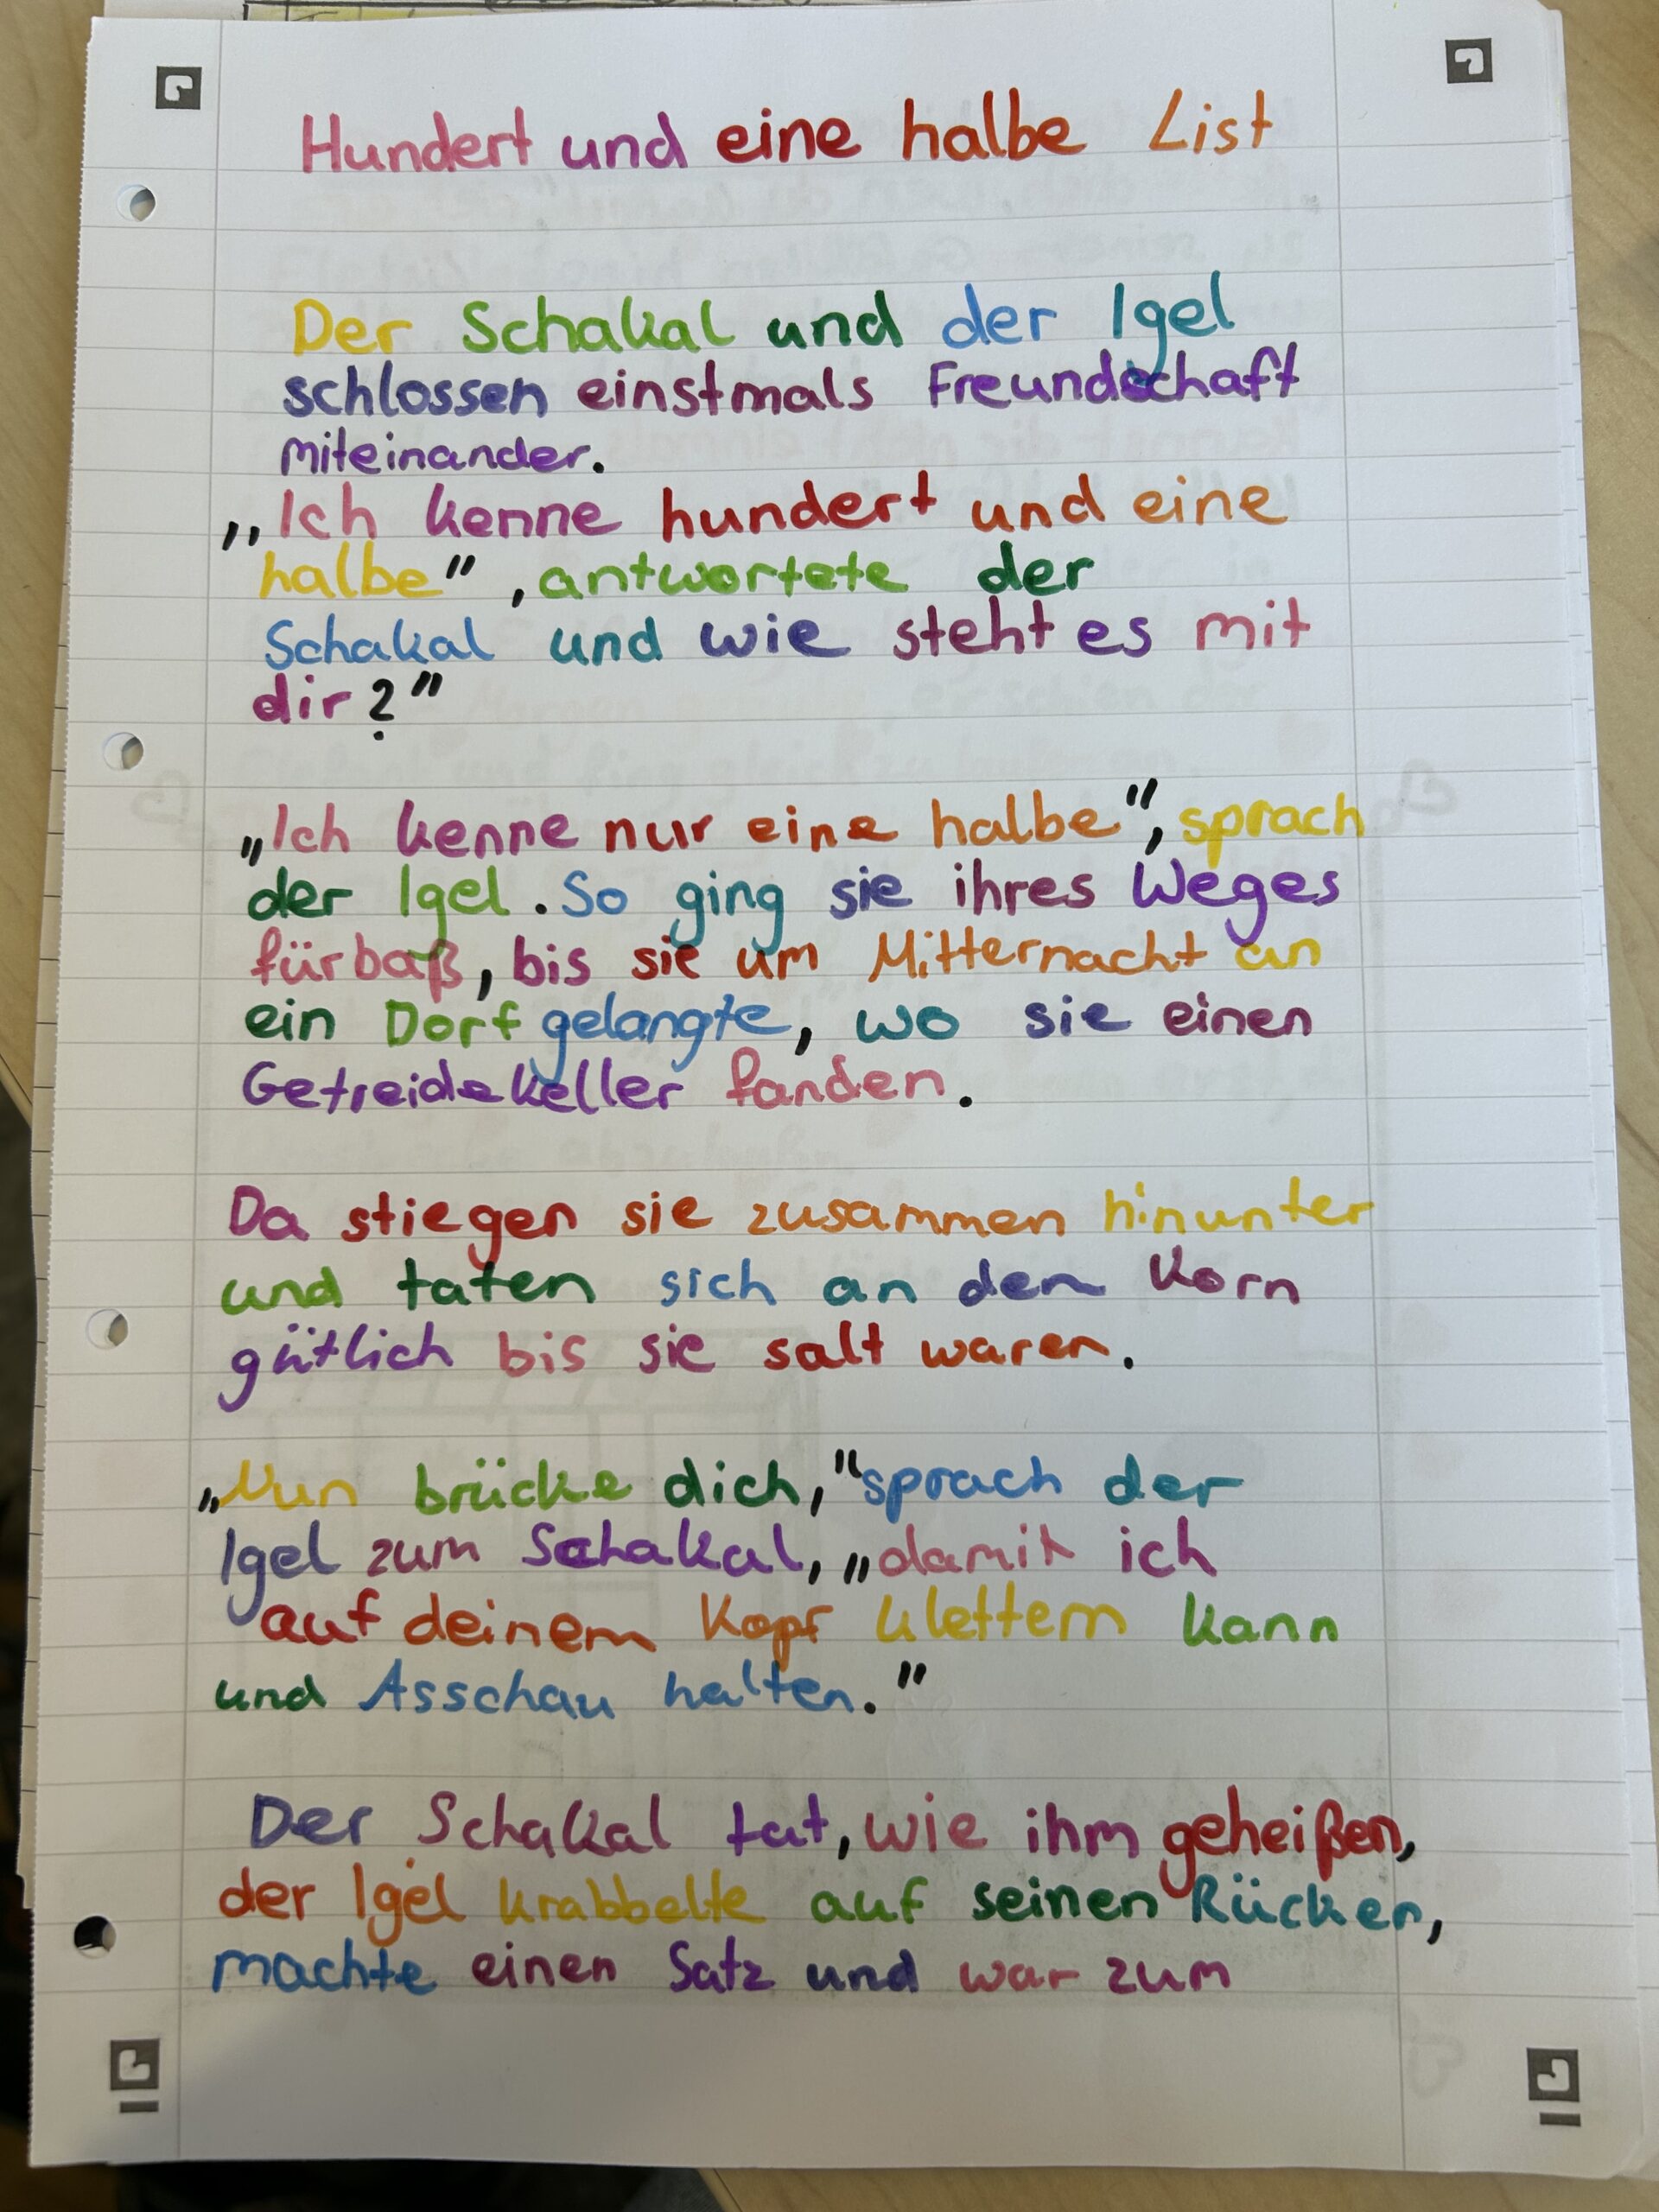 Hundert und eine halbe List
Der Schakal und der Igel
schlossen einstmals Freundschaft
miteinander.
,,Ich kenne hundert und eine
halbe", antwortete der
Schakal und wie steht es mit
dir?"
„Ich kenne nur eine halbe", sprach
der Igel. So ging sie ihres Weges
fürbaß, bis sie um Mitternacht an
ein Dorf gelangte, wo sie einen
Getreidekeller fanden.
Da stiegen sie zusammen hinunter
und taten sich an dem Korn
gütlich bis sie salt waren.
„Nun brücke dich,"sprach der
Igel zum Schakal, „damit ich
auf deinem Kopf klettern kann
und Asschau halten."
Der Schakal tat, wie ihm geheißen,
der Igel krabbelte auf seinen Rücken,
machte einen Satz und war zum